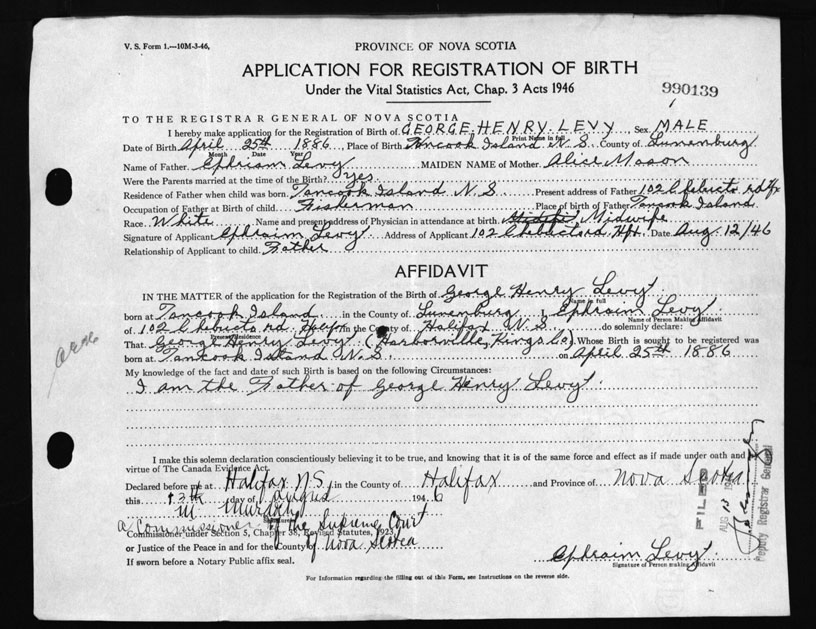 V. S. Form 1.—10M-3-46,
PROVINCE OF NOVA SCOTIA
APPLICATION FOR REGISTRATION OF BIRTH
Under the Vital Statistics Act, Chap. 3 Acts 1946
990139
TO THE REGISTRAR GENERAL OF NOVA SCOTIA
I hereby make application for the Registration of Birth of GEORGE HENRY LEVY Sex MALE
Print Name in full
Date of Birth April 25th 1886, Place of Birth Tancook Island N.S. County of Lunenburg
Month Date Year
Name of Father Ephriam Levy MAIDEN NAME of Mother Alice Mason
Were the Parents married at the time of the Birth? yes
Residence of Father when child was born Tancook Island N.S. Present address of Father 102 Chebucto rd Hfx
Occupation of Father at Birth of child Fisherman Place of birth of Father Tancook Island
Race White Name and present address of Physician in attendance at birth Midwife
Signature of Applicant Ephraim Levy Address of Applicant 102 Chebucto rd. Hfx. Date Aug 12/46
Relationship of Applicant to child Father
AFFIDAVIT
IN THE MATTER of the application for the Registration of the Birth of George Henry Levy
Name in full
born at Tancook Island in the County of Lunenburg, Ephraim Levy
Name of Person Making Affidavit
of 102 Chebucto rd. Halifax in the County of Halifax N.S. do solemnly declare:
Present Residence
That George Henry Levy (Harborville, Kings Co) Whose Birth is sought to be registered was
born at Tancook Island N.S. on April 25th 1886
My knowledge of the fact and date of such Birth is based on the following Circumstances:
I am the Father of George Henry Levy
I make this solemn declaration conscientiously believing it to be true, and knowing that it is of the same force and effect as if made under oath and
virtue of The Canada Evidence Act.
Declared before me at Halifax N.S. in the County of Halifax and Province of Nova Scotia
this 12th day of August 1946
M Murphy
a Commissioner of the Supreme Court
Commissioner under Section 5, Chapter 38, Revised Statutes, 1923
of Nova Scotia
or Justice of the Peace in and for the County
If sworn before a Notary Public affix seal.
Ephraim Levy
Signature of Person making Affidavit
For Information regarding the filling out of this Form, see Instructions on the reverse side.
FILED
AUG 13 194
Deputy Registrar General